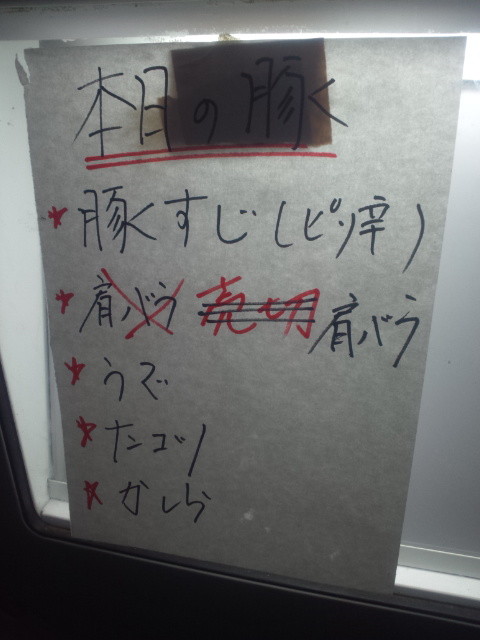 本日の豚
★豚すじ(ピリ辛)
★肩バラ 売切 肩バラ
★うで
★ナンコツ
★かしら